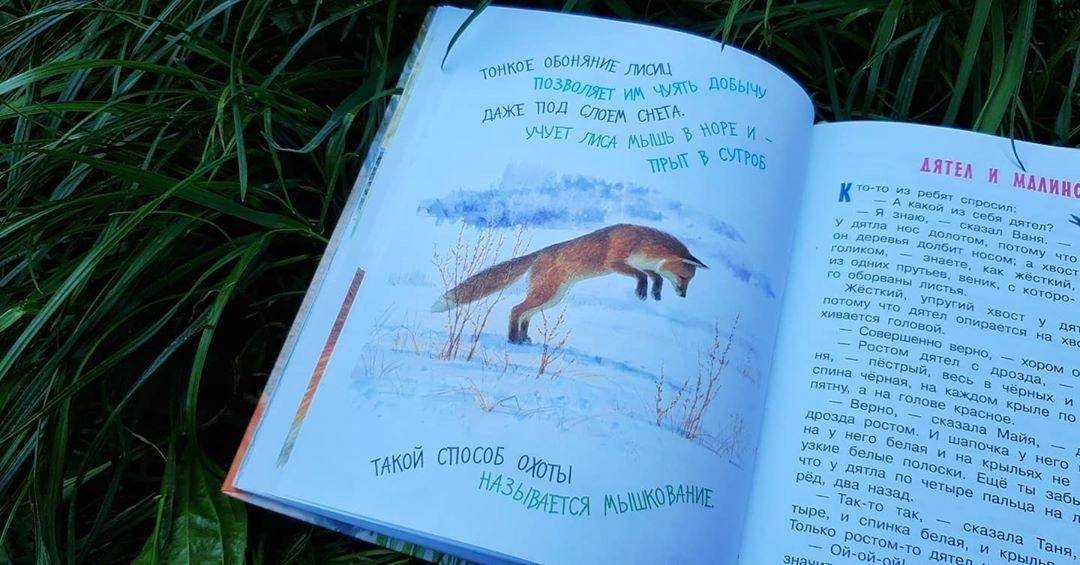 ТОНКОЕ ОБОНЯНИЕ ЛИСИЦ
ПОЗВОЛЯЕТ ИМ ЧУЯТЬ ДОБЫЧУ
ДАЖЕ ПОД СЛОЕМ СНЕГА.
УЧУЕТ ЛИСА МЫШЬ В НОРЕ И –
ПРЫГ В СУГРОБ
ТАКОЙ СПОСОБ ОХОТЫ
НАЗЫВАЕТСЯ МЫШКОВАНИЕ.
ДЯТЕЛ И МАЛИНО
Кто-то из ребят спросил:
— А какой из себя дятел?
— Я знаю, — сказал Ваня. —
у дятла нос долотом, потому что
он деревья долбит носом; а хвост
голиком, — знаете, как жёсткий,
из одних прутьев, веник, с которо-
го оборваны листья.
Жёсткий, упругий хвост у дят
потому что дятел опирается на хво
хивается головой.
— Совершенно верно, — хором о
— Ростом дятел с дрозда, —
ня, — пёстрый, весь в чёрных и
спина чёрная, на каждом крыле по
пятну, а на голове красное.
— Верно, — сказала Майя, —
дрозда ростом. И шапочка у него
на у него белая и на крыльях не
узкие белые полоски. Ещё ты забы
что у дятла по четыре пальца на л
рёд, два назад.
— Так-то так, — сказала Таня,
тыре, и спинка белая, и крылья
Только ростом-то дятел
— Ой-ой-ой!
значит